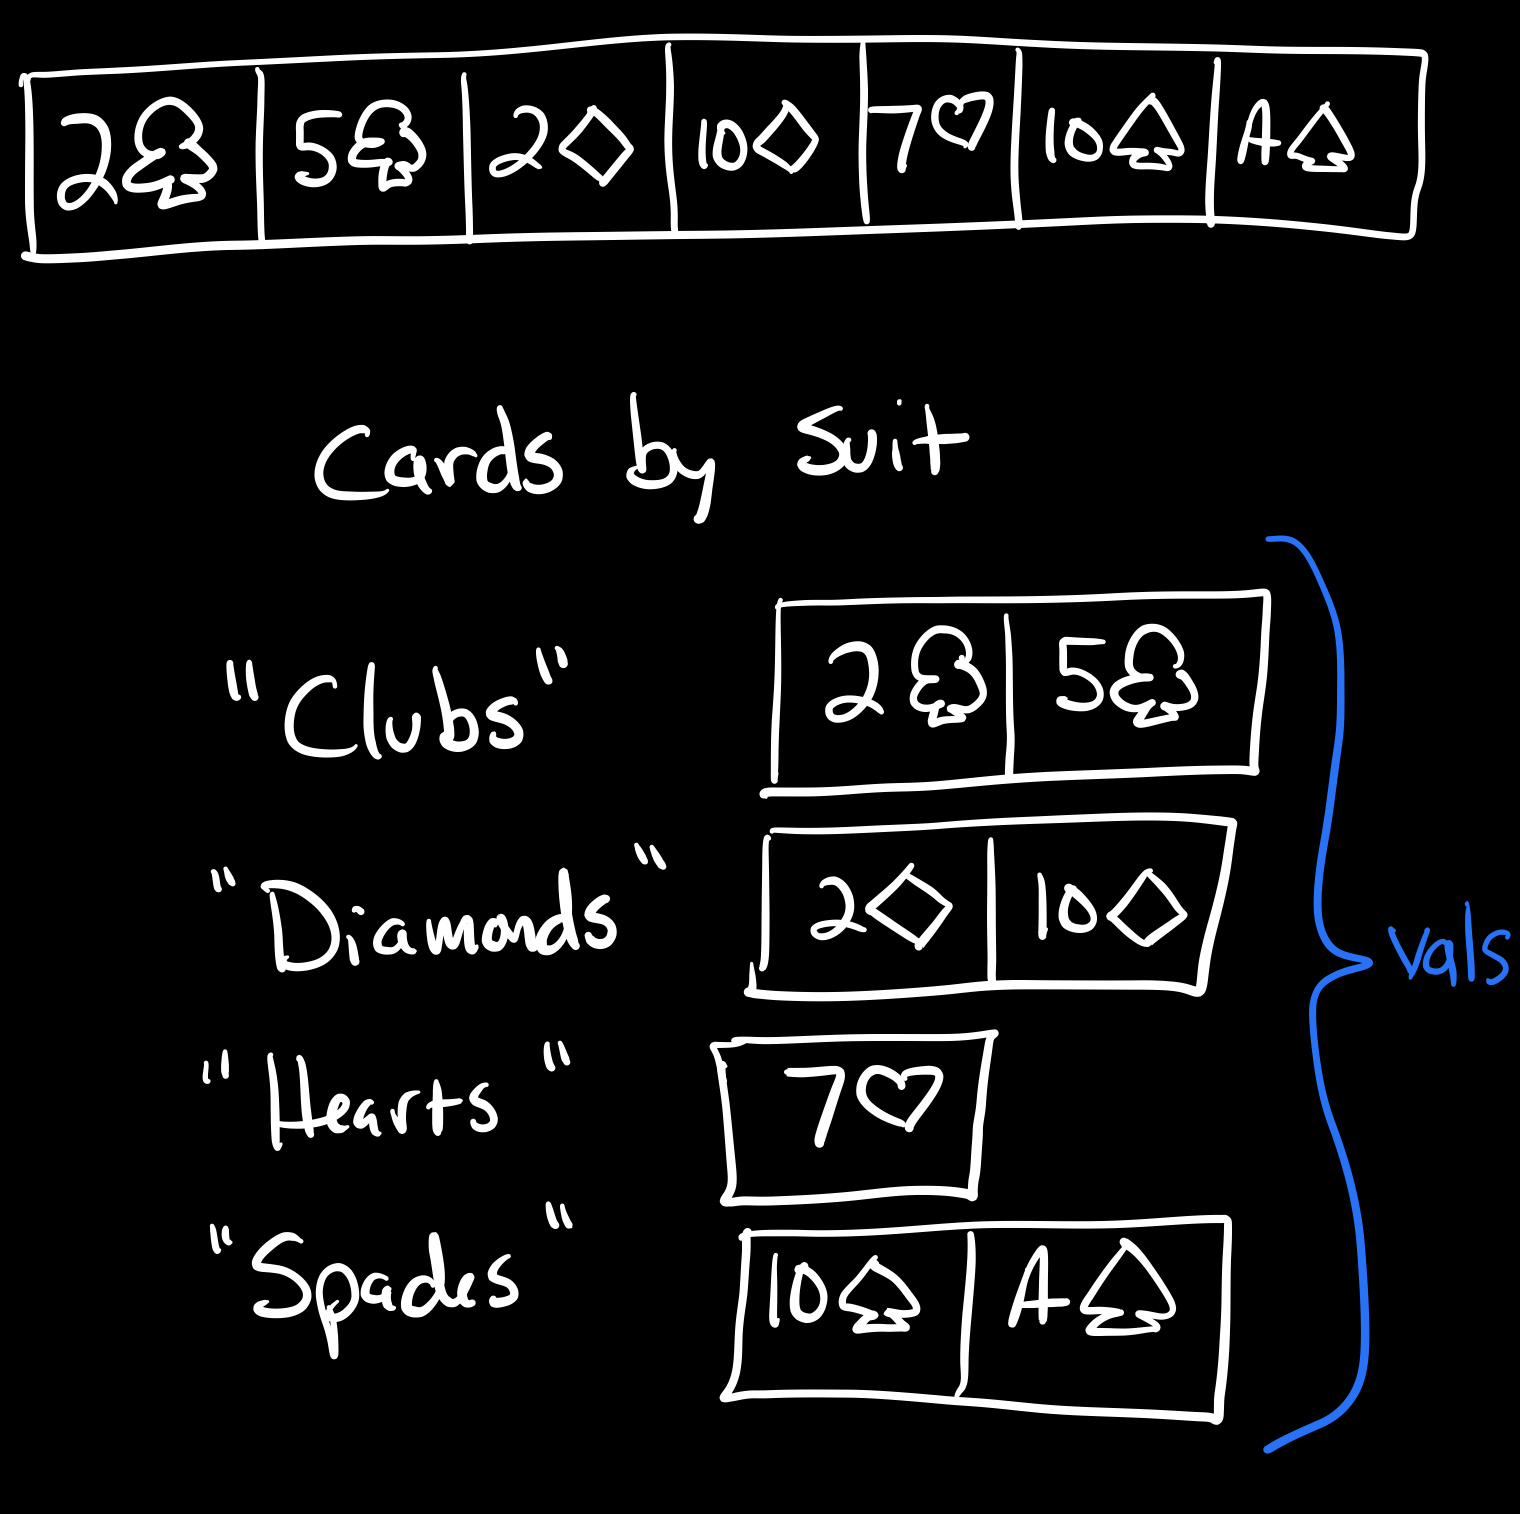 2♧ 5♧ 2◇ 10◇ 7♡ 10♤ A♤
Cards by Suit
"Clubs" 2♧ 5♧
"Diamonds" 2◇ 10◇
vals
"Hearts" 7♡
"Spades" 10♤ A♤